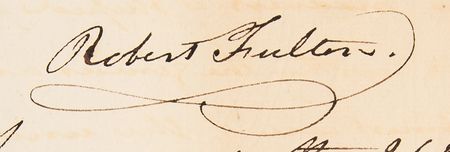 Robert Fulton.